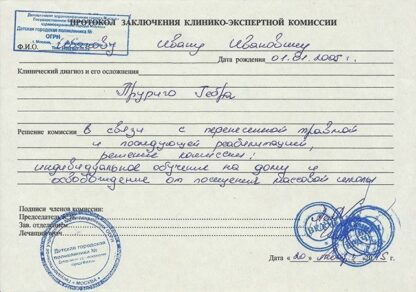 ПРОТОКОЛ ЗАКЛЮЧЕНИЯ КЛИНИКО-ЭКСПЕРТНОЙ КОМИССИИ
Детская городская поликлиника №
ОГРН
Ф.И.О. Иванову Ивану Ивановичу
Дата рождения 01.01.2005 г.
Клинический диагноз и его осложнения
Пруриго Гебра
Решение комиссии в связи с перенесенной травмой
и последующей реабилитацией,
решение комиссии:
индивидуальное обучение на дому и
освобождение от посещения массовой школы
Подписи членов комиссии:
Председатель
Зав. отделением
Лечащий
Детская городская
поликлиника №
Дата «20»